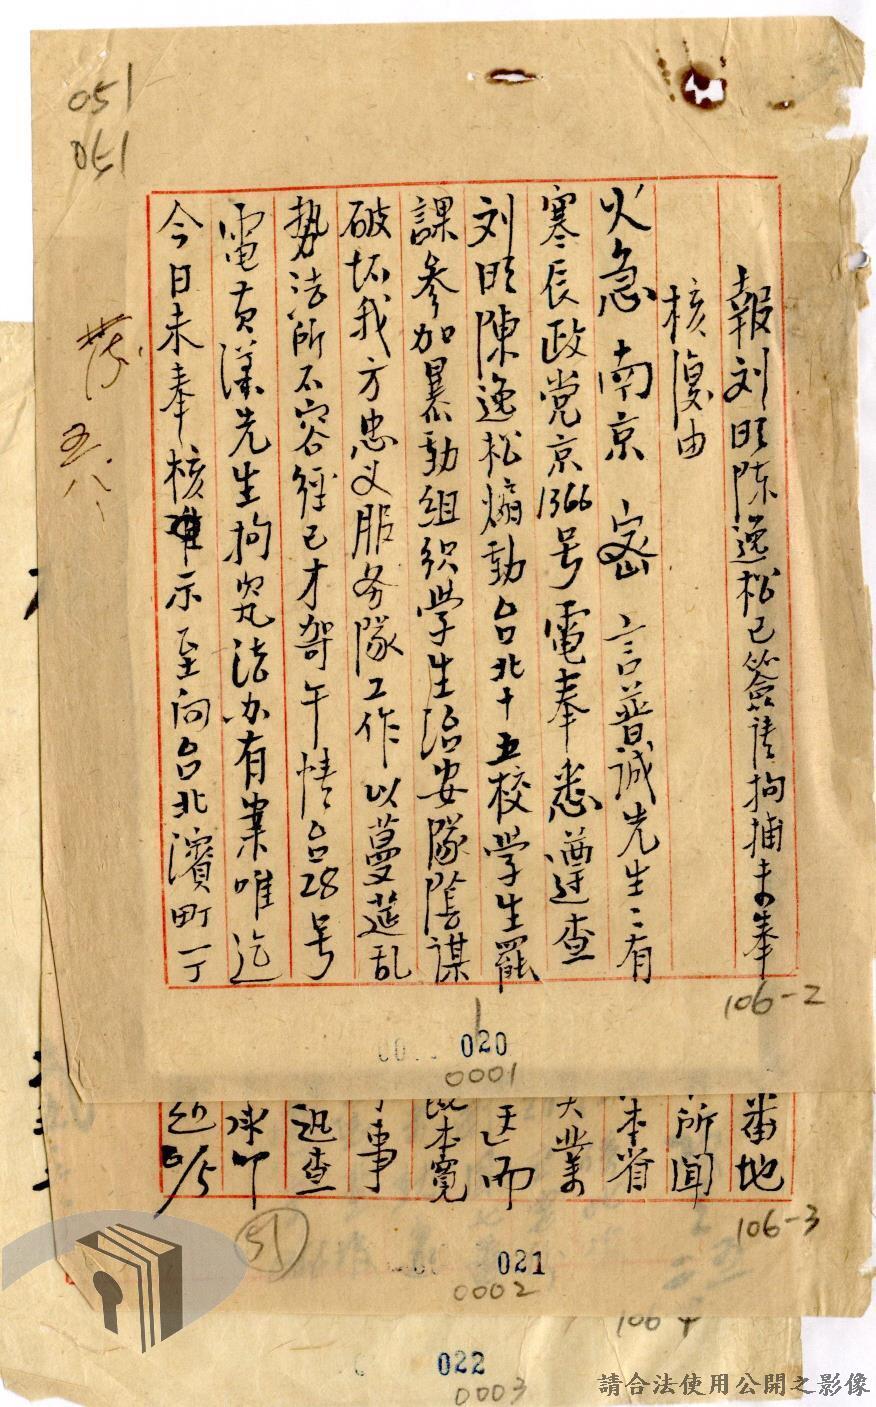 051
051
報刘明陈逸松已簽请拘捕未奉
核復由
火急 南京 密 言普诚先生:有
寒辰政党京1366号電奉悉遵查
刘明陳逸松煽動台北十五校学生罷
課参加暴動組织学生治安隊陰谋
破坏我方忠义服务隊工作以蔓莚乱
势法所不容経已才哿午情台28号
電黄漢先生拘究法办有案唯迄
今日未奉核准示至向台北濱町一丁
五八
106-2
020
0001
番地
所聞
本省
業
而
本寬
事
迅查
5/5
106-3
51
021
0002
106 4
022
0003
請合法使用公開之影像